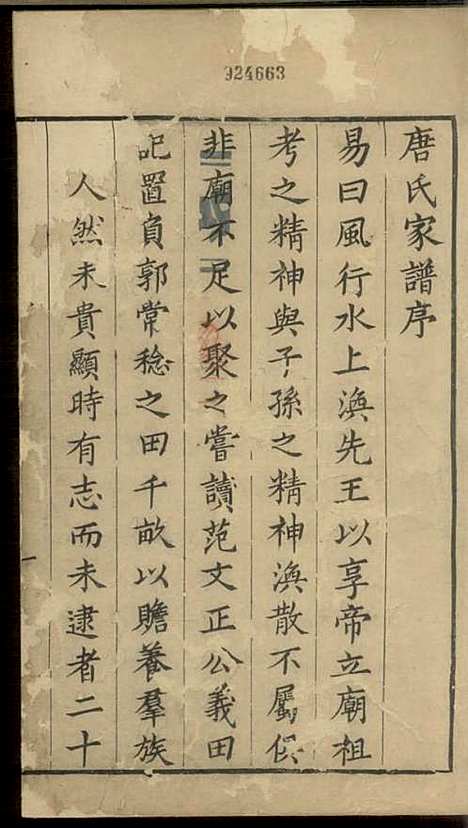 924663
唐氏家譜序
易曰風行水上渙先王以享帝立廟祖
考之精神與子孫之精神渙散不屬
非廟不足以聚之嘗讀范文正公義田
記置負郭常稔之田千畝以贍養羣族
人然未貴顯時有志而未逮者二十
一